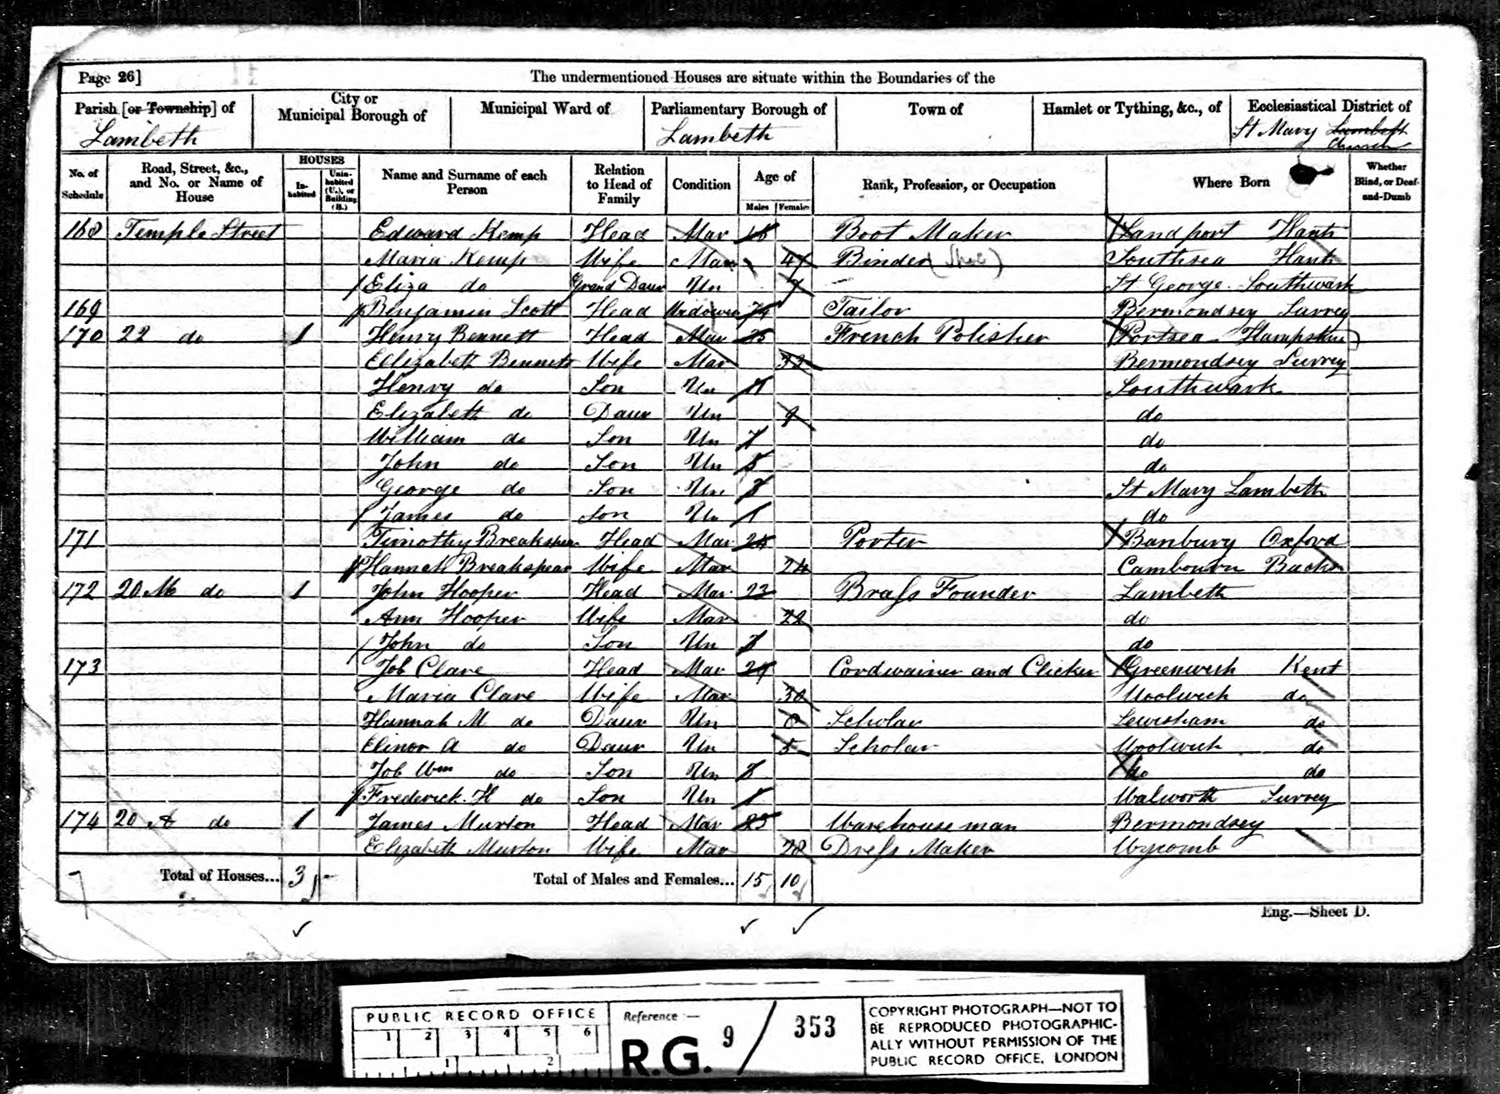 Page 26]
The undermentioned Houses are situate within the Boundaries of the
Parish [or Township] of
Lambeth
City or Municipal Borough of
Municipal Ward of
Parliamentary Borough of
Lambeth
Town of
Hamlet or Tything, &c., of
Ecclesiastical District of
St Mary Lambeth church
No. of Schedule
Road, Street, &c., and No. or Name of House
HOUSES
Inhabited
Uninhabited (U.), or Building (B.)
Name and Surname of each Person
Relation to Head of Family
Condition
Age of
Males
Females
Rank, Profession, or Occupation
Where Born
Whether Blind, or Deaf-and-Dumb
168 Temple Street Edward Kemp Head Mar Boot Maker Landport Hants
Maria Kemp Wife Mar 47 Binder (Shoe) Southsea Hants
Eliza do Grand Daur Un 7 St George Southwark
169 Benjamin Scott Head Widower 74 Tailor Bermondsey Surrey
170 22 do 1 Henry Bennett Head Mar 35 French Polisher Portsea Hampshire
Elizabeth Bennett Wife Mar 32 Bermondsey Surrey
Henry do Son Un 11 Southwark
Elizabeth do Daur Un 9 do
William do Son Un 7 do
John do Son Un 5 do
George do Son Un 3 St Mary Lambeth
James do Son Un 1 do
171 Timothy Breakspear Head Mar 24 Porter Banbury Oxford
Hannah Breakspear Wife Mar 24 Bucks
172 20 M do 1 John Hooper Head Mar 23 Brass Founder Lambeth
Ann Hooper Wife Mar 22 do
John do Son Un do
173 Job Clare Head Mar 29 Cordwainer and Clicker Greenwich Kent
Maria Clare Wife Mar 30 Woolwich do
Hannah M do Daur Un Scholar Lewisham do
Elinor A do Daur Un 5 Scholar Woolwich do
Job Wm do Son Un 3 do do
Frederick H do Son Un 1 Walworth Surrey
174 20 A do 1 James Murton Head Mar 25 Warehouse man Bermondsey
Elizabeth Murton Wife Mar 28 Dress Maker Wycomb
Total of Houses... 3 Total of Males and Females... 15 10
Eng.—Sheet D.
PUBLIC RECORD OFFICE
1 2 3 4 5 6
1 2
Reference :—
R.G. 9 / 353
COPYRIGHT PHOTOGRAPH—NOT TO
BE REPRODUCED PHOTOGRAPHIC-
ALLY WITHOUT PERMISSION OF THE
PUBLIC RECORD OFFICE, LONDON